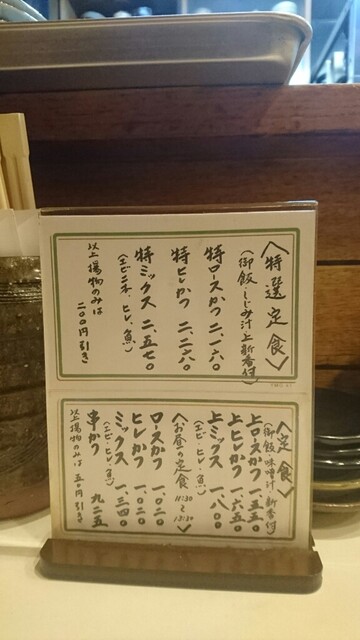 〈特選定食〉
(御飯・しじみ汁上新香付)
特ロースかつ 二、一六〇
特ヒレかつ 二、二六〇
特ミックス 二、五七〇
(エビ二ネ、ヒレ、魚)
以上揚物のみは
二〇〇円引き
〈定食〉
(御飯味噌汁新香付)
上ロースかつ 一、五五〇
上ヒレかつ 一、六五〇
上ミックス 一、八〇〇
(エビ・ヒレ・魚)
〈お昼の定食 11:30〜13:30
ロースかつ 一、〇二〇
ヒレかつ 一、〇二〇
ミックス 一、三四〇
(エビ・ヒレ・魚)
串かつ 九二五
以上揚物のみは 五〇円引き